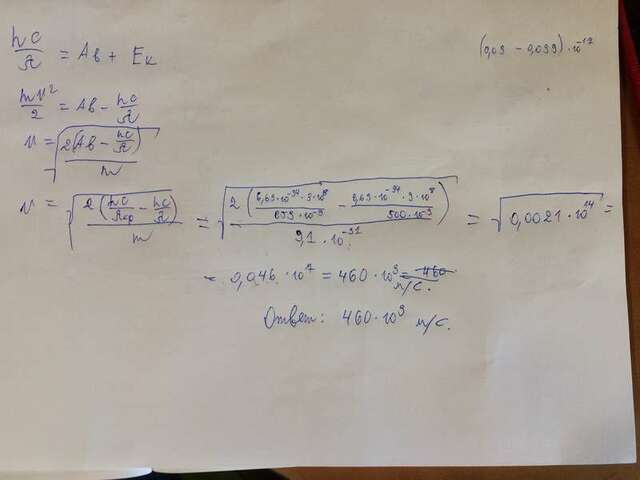 hc/λ = Aв + Eк
(0,03 - 0,039)·10⁻¹⁷
mv²/2 = Aв - hc/λ
v = √(2(Aв - hc/λ)/m)
v = √(2(hc/λкр - hc/λ)/m) = √(2(6,63·10⁻³⁴·3·10⁸/653·10⁻⁹ - 6,63·10⁻³⁴·3·10⁸/500·10⁻⁹)/9,1·10⁻³¹) = √(0,0021·10¹⁴) =
= 0,046·10⁷ = 460·10³ = 460 м/с.
Ответ: 460·10³ м/с.